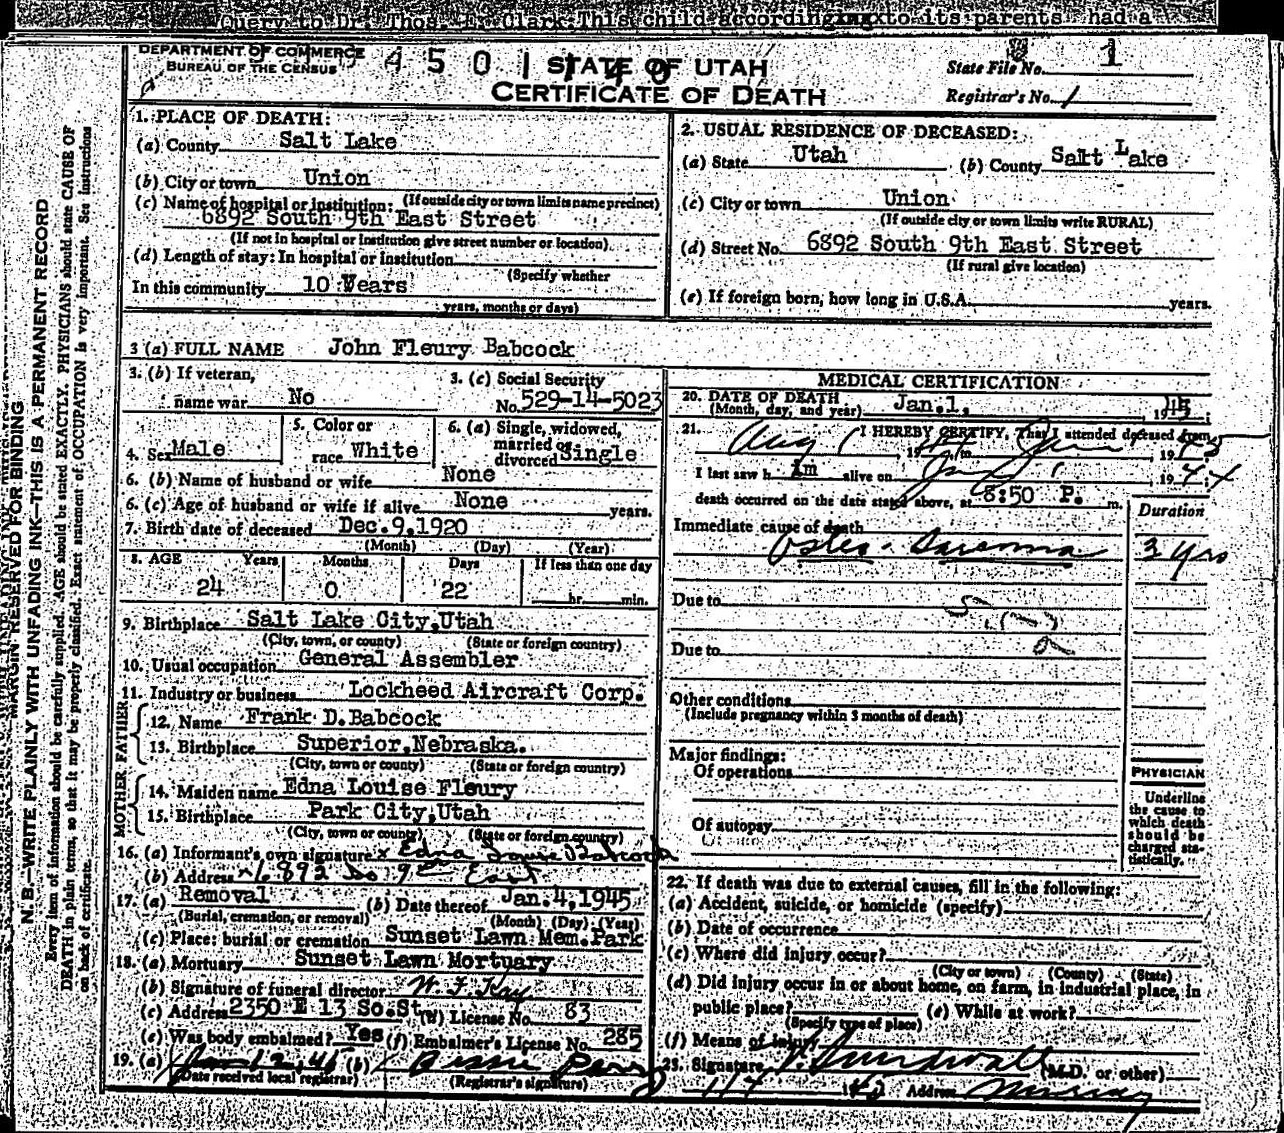 Query to Dr. Thos. E. Clark This child according to its parents had a
DEPARTMENT OF COMMERCE
BUREAU OF THE CENSUS
4501
STATE OF UTAH
CERTIFICATE OF DEATH
State File No. 1
Registrar's No. 1
1. PLACE OF DEATH:
(a) County Salt Lake
(b) City or town Union
(If outside city or town limits name precinct)
(c) Name of hospital or institution:
6892 South 9th East Street
(If not in hospital or institution give street number or location)
(d) Length of stay: In hospital or institution
(Specify whether
In this community 10 Years
years, months or days)
2. USUAL RESIDENCE OF DECEASED:
(a) State Utah (b) County Salt Lake
(c) City or town Union
(If outside city or town limits write RURAL)
(d) Street No. 6892 South 9th East Street
(If rural give location)
(e) If foreign born, how long in U.S.A. years.
3 (a) FULL NAME John Fleury Babcock
3. (b) If veteran,
name war No
3. (c) Social Security
No. 529-14-5023
4. Sex Male
5. Color or
race White
6. (a) Single, widowed,
married or
divorced Single
6. (b) Name of husband or wife None
6. (c) Age of husband or wife if alive None years.
7. Birth date of deceased Dec.9,1920
(Month) (Day) (Year)
8. AGE Years Months Days If less than one day
24 0 22 hr. min.
9. Birthplace Salt Lake City, Utah
(City, town, or county) (State or foreign country)
10. Usual occupation General Assembler
11. Industry or business Lockheed Aircraft Corp.
FATHER
12. Name Frank D. Babcock
13. Birthplace Superior, Nebraska.
(City, town or county) (State or foreign country)
MOTHER
14. Maiden name Edna Louise Fleury
15. Birthplace Park City, Utah
(City, town or county) (State or foreign country)
16. (a) Informant's own signature x Edna Louise Babcock
(b) Address 6892 So 9th East
17. (a) Removal (b) Date thereof Jan. 4, 1945
(Burial, cremation, or removal) (Month) (Day) (Year)
(c) Place: burial or cremation Sunset Lawn Mem. Park
18. (a) Mortuary Sunset Lawn Mortuary
(b) Signature of funeral director W. F. Kay
(c) Address 2350 E 13 So. St. License No. 83
(e) Was body embalmed? Yes (f) Embalmer's License No. 285
19. (a) (b)
(Date received local registrar) (Registrar's signature)
MEDICAL CERTIFICATION
20. DATE OF DEATH
(Month, day, and year) Jan.1, 1945
21. I HEREBY CERTIFY, That I attended deceased from
Aug 1 19 to Jan 19
I last saw him alive on Jan 1 1944
death occurred on the date stated above, at 8:50 P. m.
Duration
Immediate cause of death
Osteo-Sarcoma 3 yrs
Due to
Due to
Other conditions
(Include pregnancy within 3 months of death)
Major findings:
Of operations
Of autopsy
PHYSICIAN
Underline
the cause to
which death
should be
charged sta-
tistically.
22. If death was due to external causes, fill in the following:
(a) Accident, suicide, or homicide (specify)
(b) Date of occurrence
(c) Where did injury occur?
(City or town) (County) (State)
(d) Did injury occur in or about home, on farm, in industrial place, in
public place? (e) While at work?
(Specify type of place)
(f) Means of injury
23. Signature (M.D. or other)
Address Murray
MARGIN RESERVED FOR BINDING
N. B.—WRITE PLAINLY WITH UNFADING INK—THIS IS A PERMANENT RECORD
Every item of information should be carefully supplied. AGE should be stated EXACTLY. PHYSICIANS should state CAUSE OF
DEATH in plain terms, so that it may be properly classified. Exact statement of OCCUPATION is very important. See instructions
on back of certificate.